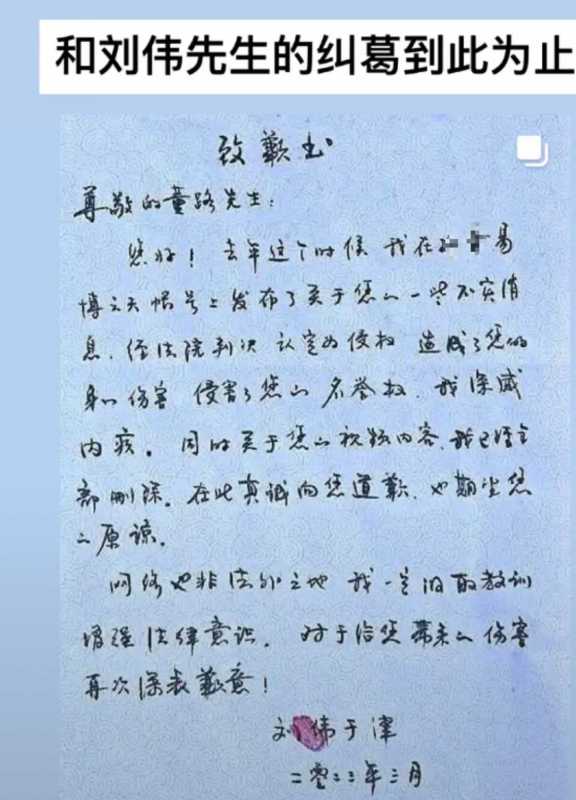 和刘伟先生的纠葛到此为止
致歉书
尊敬的董路先生：
您好！去年这个时候 我在 易
博文天帐号上发布了关于您的一些不实消
息，经法院判决 认定为侵权 造成了您的
身心伤害 侵害了您的名誉权，我深感
内疚。同时关于您的视频内容，我已经全
部删除。在此真诚向您道歉，也期望您
的原谅。
网络也非法外之地 我一定汲取教训
增强法律意识。对于给您带来的伤害
再次深表歉意！
刘伟于津
二零二三年三月